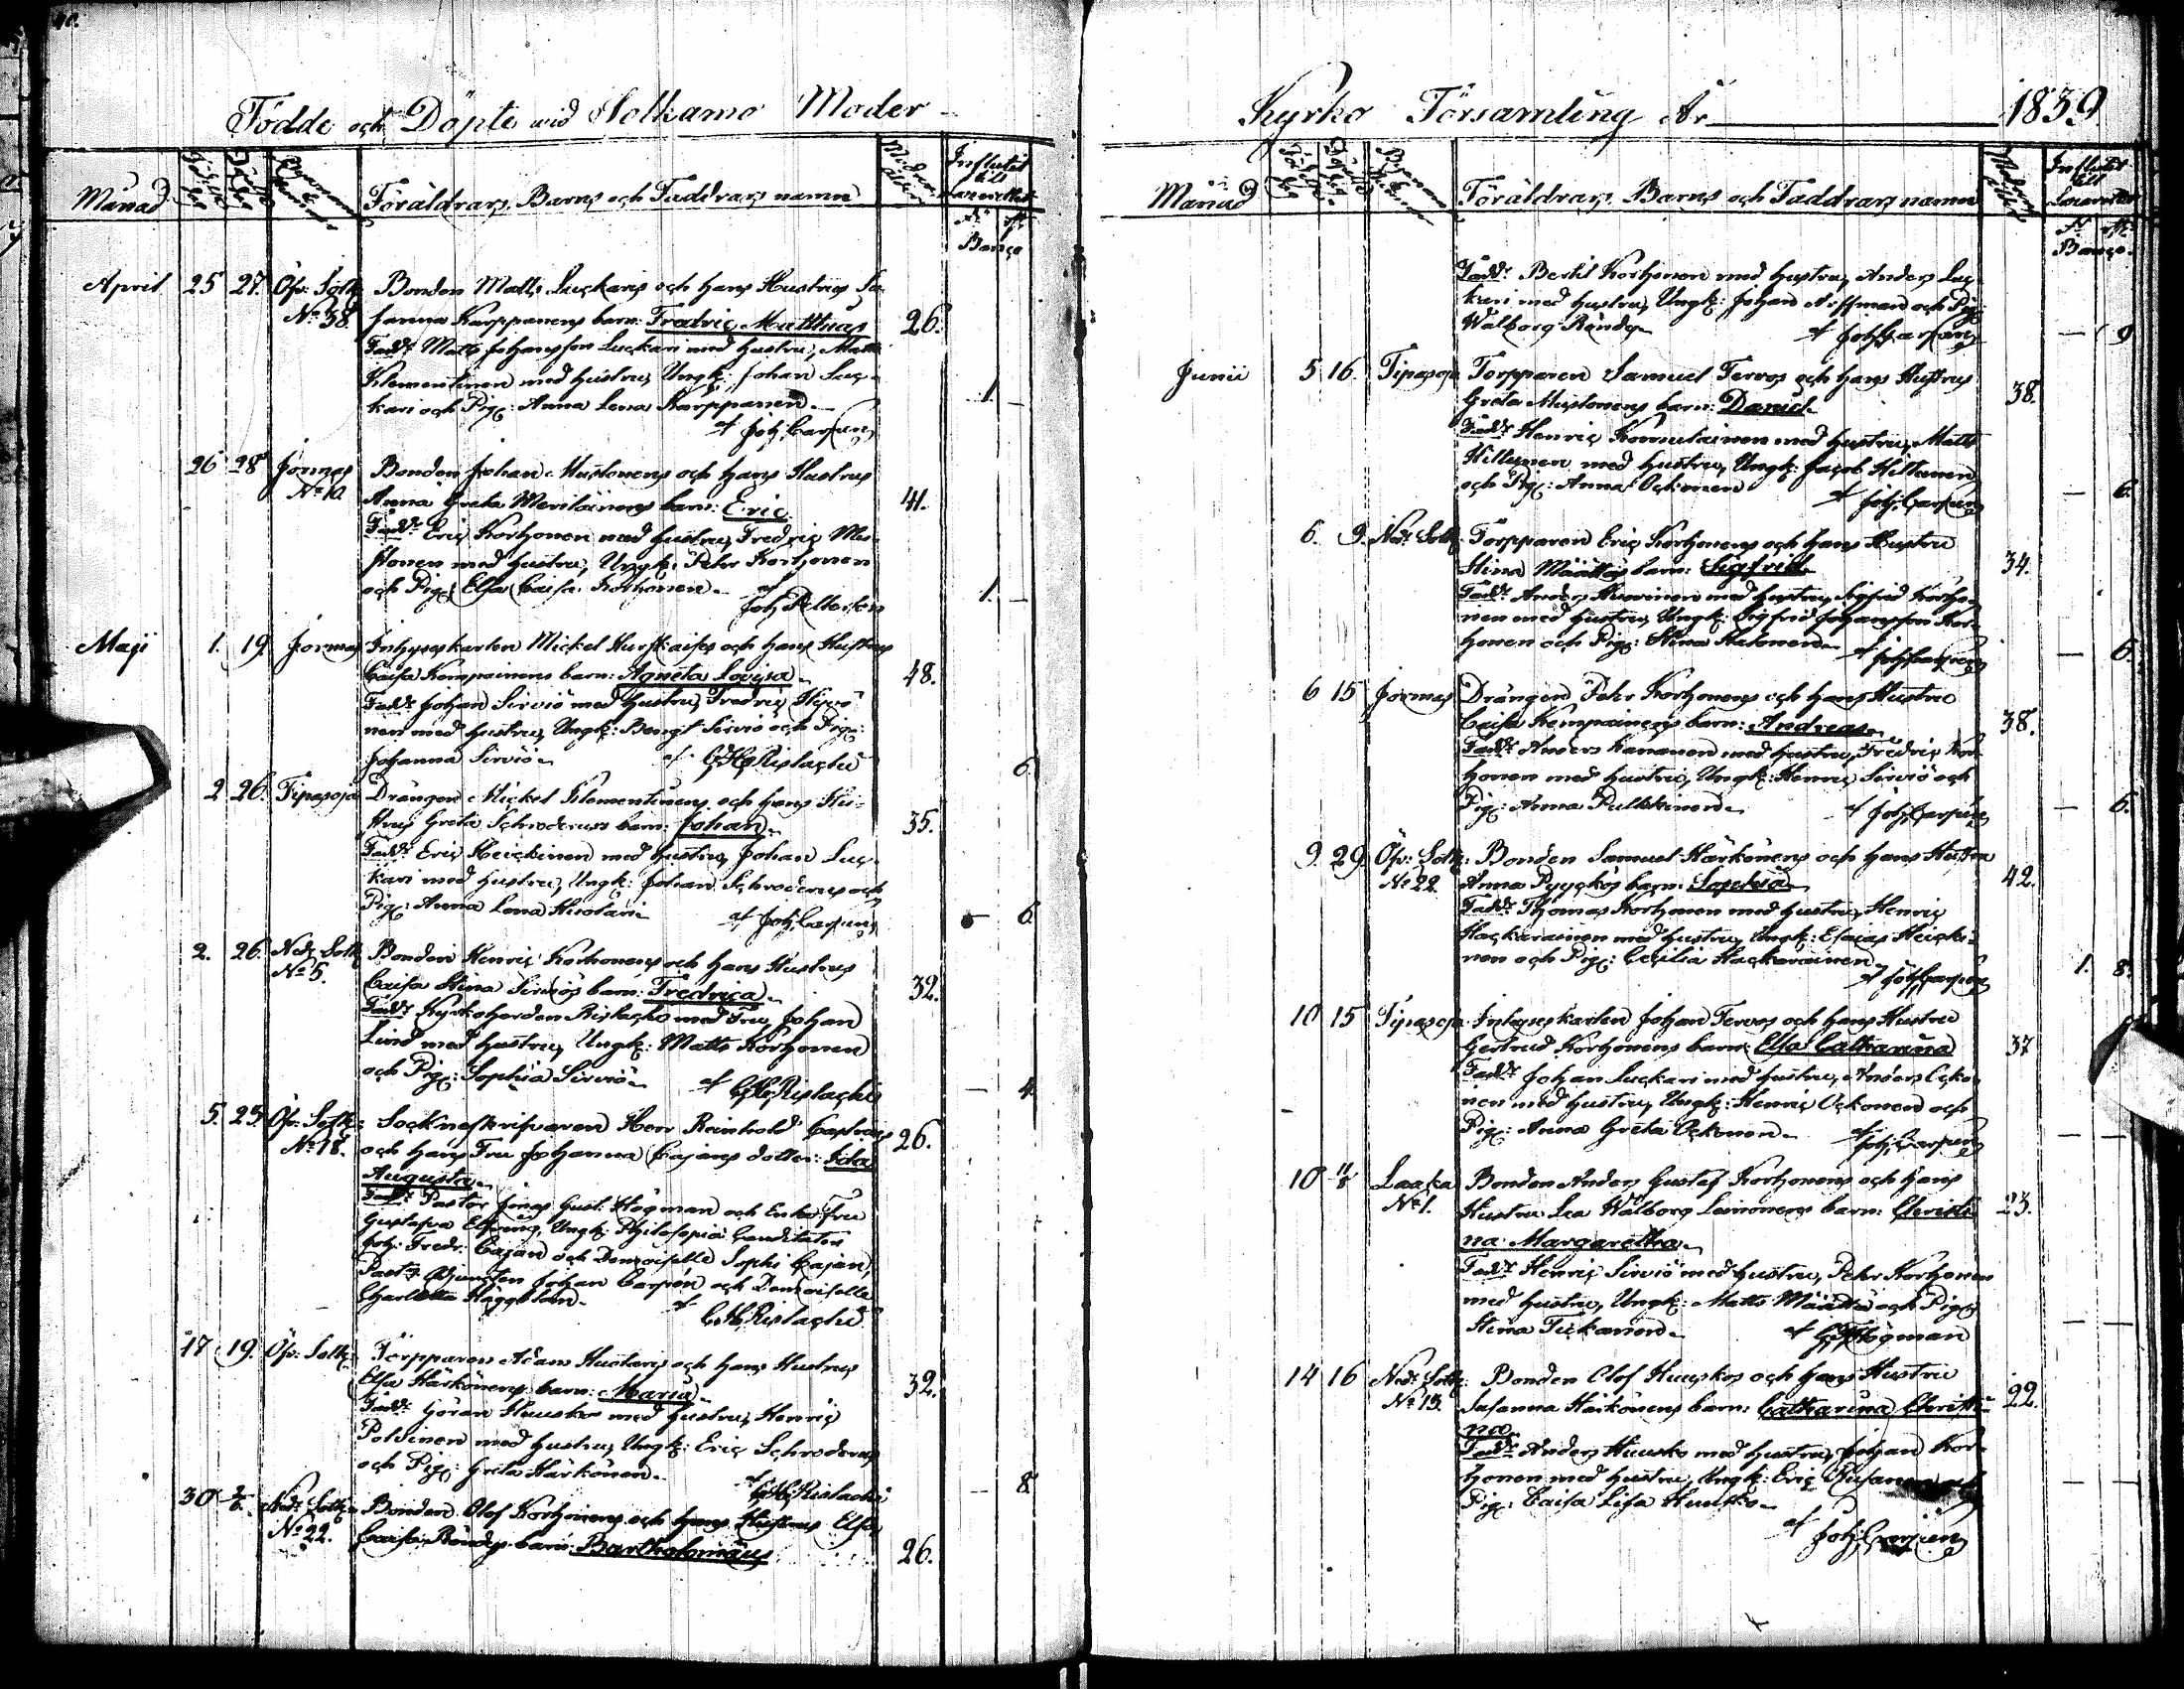 40.
Födde och Döpte wid Sotkamo Moder
Månad
Föräldrars, Barns och Faddrars namn
Influtit till Lazarettet
Banco
April 25 27. Öfr: Sotk: Bonden Matts Luckaris och hans Hustrus Su-
No 38. sanna Karppanens barn: Fredric Matthias 26.
Fadd: Matts Johansson Luckari med hustru, Matts
Klementinen med hustru, Ungk: Johan Luc-
kari och Pig: Anna Lena Karppanen. 1. —
af Joh. Carpén
26 28 Jormas Bonden Johan Mustonens och hans Hustrus
No 10 Anna Greta Meriläinens barn: Eric. 41.
Fadd: Eric Korhonen med hustru, Fredric
honen med hustru, Ungk: Pehr Korhonen
och Pig: Elsa Caisa Korhonen. af 1. —
Maji 1. 19 Jormas Inhyseskarlen Mickel Hurskaises och hans Hustrus
Caisa Kempainens barn: Agneta Lovisa. 48.
Fadd: Johan Sirviö med hustru, Fredric
nen med hustru, Ungk: Bengt Sirviö och Pig:
Johanna Sirviö. af G.H. Ristachii 6
2 26. Tipasoja Drängen Mickel Klementinens och hans Hu-
strus Greta Schroderus barn: Johan. 35.
Fadd: Eric Heickinen med hustru, Johan Luc-
kari med hustru, Ungk: Johan Schroderus och
Pig: Anna Lena af Joh. Carpén — 6
2. 26. Ned: Sotk: Bonden Henric Korhonens och hans Hustrus
No 5. Caisa Stina Sirviös barn: Fredrica. 32.
Fadd: Kyrkoherden Ristachii med Fru, Johan
Lind med hustru, Ungk: Matts Korhonen
och Pig: Sophia Sirviö. af G.H. Ristachii — 4
5. 25 Öfr: Sotk: Socknskrifvaren Herr Reinhold Castrens 26.
No 18. och hans Fru Johanna Cajans dotter: Ida
Augusta.
Fadd: Pastor Jonas Gust: Högman och Enke Fru
Gustafva Elfving, Ungk: Philosophiæ Canditaten
Joh: Fredr: Cajan och Demoiselle Sophi Cajan,
Past: Adjuncten Johan Carpén och Demoiselle
Charlotta Häggblom. af
G.H. Ristachii
17 19. Öfr: Sotk: Torpparen Adam Huotaris och hans Hustrus
Elsa Härkönens barn: Maria. 32.
Fadd: Göran Huusko med hustru, Henric
Poldinen med hustru, Ungk: Eric Schroderus
och Pig: Greta Härkönen. af G.H. Ristachii — 8
30 2/6. Ned: Sotk: Bonden Olof Korhonens och hans Hustrus Elsa
No 22. Caisa Röndys barn: Bartholomäus 26.
Kyrko Församling År 1839
Månad
Föräldrars, Barns och Faddrars namn
Influtit till Lazarettet
Banco.
Fadd: Bertil Korhonen med hustru, Anders Luc-
kari med hustru, Ungk: Johan Arffman och Pig:
Walborg Röndy. af Joh. Carpén — 9
Junii 5 16. Tipasoja Torpparen Samuel Tervos och hans Hustrus
Greta Mustonens barn: Daniel. 38.
Fadd: Henric Komulainen med hustru, Matts
Hiltunen med hustru, Ungk: Jacob Hiltunen
och Pig: Anna Ockonen af Joh. Carpén — 6.
6. 9. Ned: Sotk: Torpparen Eric Korhonens och hans Hustru
Stina Määttäs barn: Sigfrid. 34.
Fadd: Anders med hustru, Sigfrid Korho-
nen med hustru, Ungk: Sigfrid Johansson Kor-
honen och Pig: Stina Halonen. af Joh. Carpén — 6.
6 15 Jormas Drängen Pehr Korhonens och hans Hustru
Caisa Kempainens barn: Andreas. 38.
Fadd: Anders Kananen med hustru, Fredric Kor-
honen med hustru, Ungk: Henric Sirviö och
Pig: Anna Pulkkinen. af Joh. Carpén — 6.
9. 29 Öfr: Sotk: Bonden Samuel Härkönens och hans Hustru
No 22. Anna Pyyckös barn: Sophia. 42.
Fadd: Thomas Korhonen med hustru, Henric
Hackarainen med hustru, Ungk: Esaias Heicki-
nen och Pig: Cecilia Hackarainen.
af Joh. Carpén 1. 8.
10 15 Tipasoja Inhyseskarlen Johan Tervos och hans Hustru
Gertrud Korhonens barn: Elsa Catharina 37
Fadd: Johan Luckari med hustru, Anders Ocko-
nen med hustru, Ungk: Henric Ockonen och
Pig: Anna Greta Ockonen. af Joh. Carpén — —
10 Laaka Bonden Anders Gustaf Korhonens och hans
No 1. Hustru Lea Walborg Leinonens barn: Christi- 23.
na Margaretha.
Fadd: Henric Sirviö med hustru, Pehr Korhonen
med hustru, Ungk: Matts Määttä och Pig:
Stina Tickanen. af Högman — —
14 16 Ned: Sotk: Bonden Olof Huuskos och hans Hustru
No 13. Susanna Härkönens barn: Catharina Christi- 22.
na.
Fadd: Anders Huusko med hustru, Johan Kor-
honen med hustru, Ungk: Eric och
Pig: Caisa Lisa Huusko. — —
af Joh. Carpén